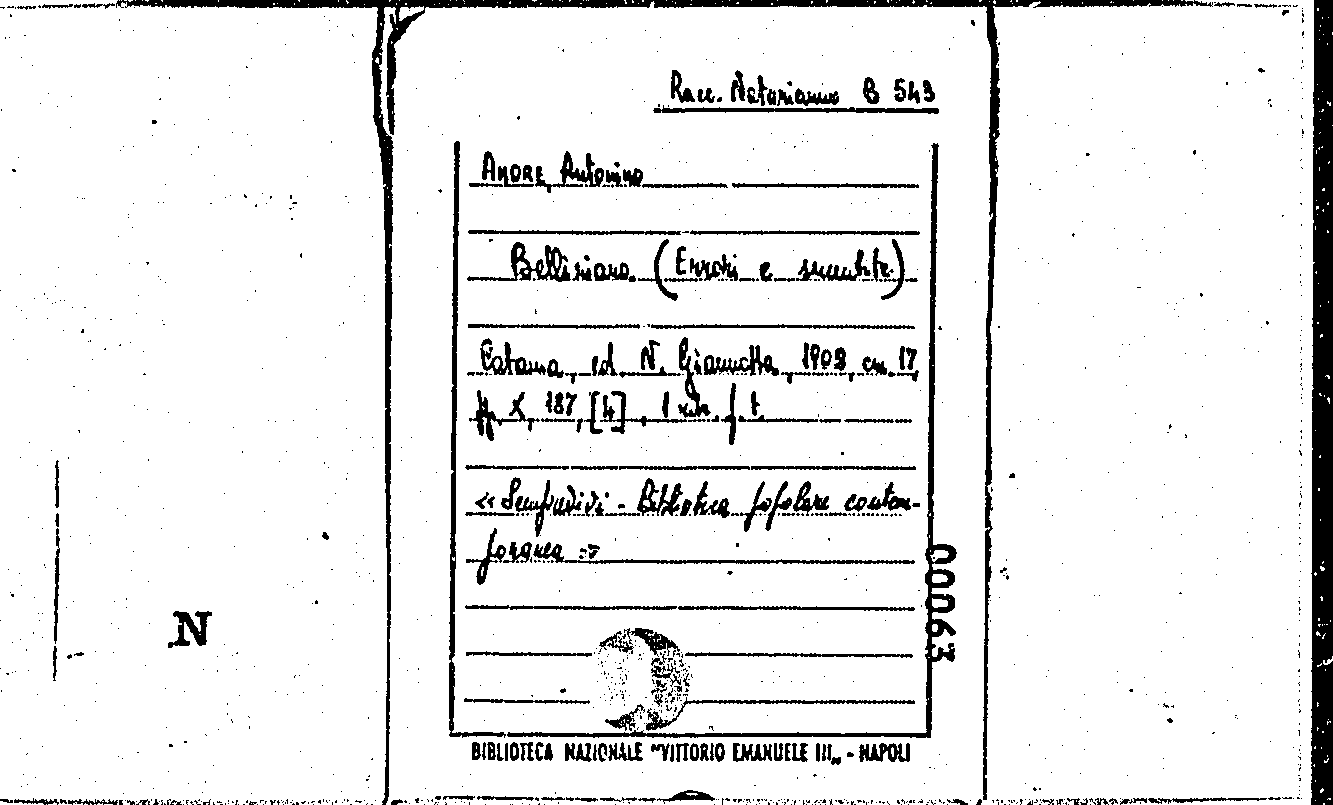 Racc. Notarianni B 543
AMORE, Antonino
Belliniana (Errori e smentite)
Catania, ed. N. Giannotta, 1902, cm. 17,
pp. X, 187, [4], 1 ritr. f. t.
« Semprevivi - Biblioteca popolare contem-
poranea »
00063
N
BIBLIOTECA NAZIONALE "VITTORIO EMANUELE III„ - NAPOLI